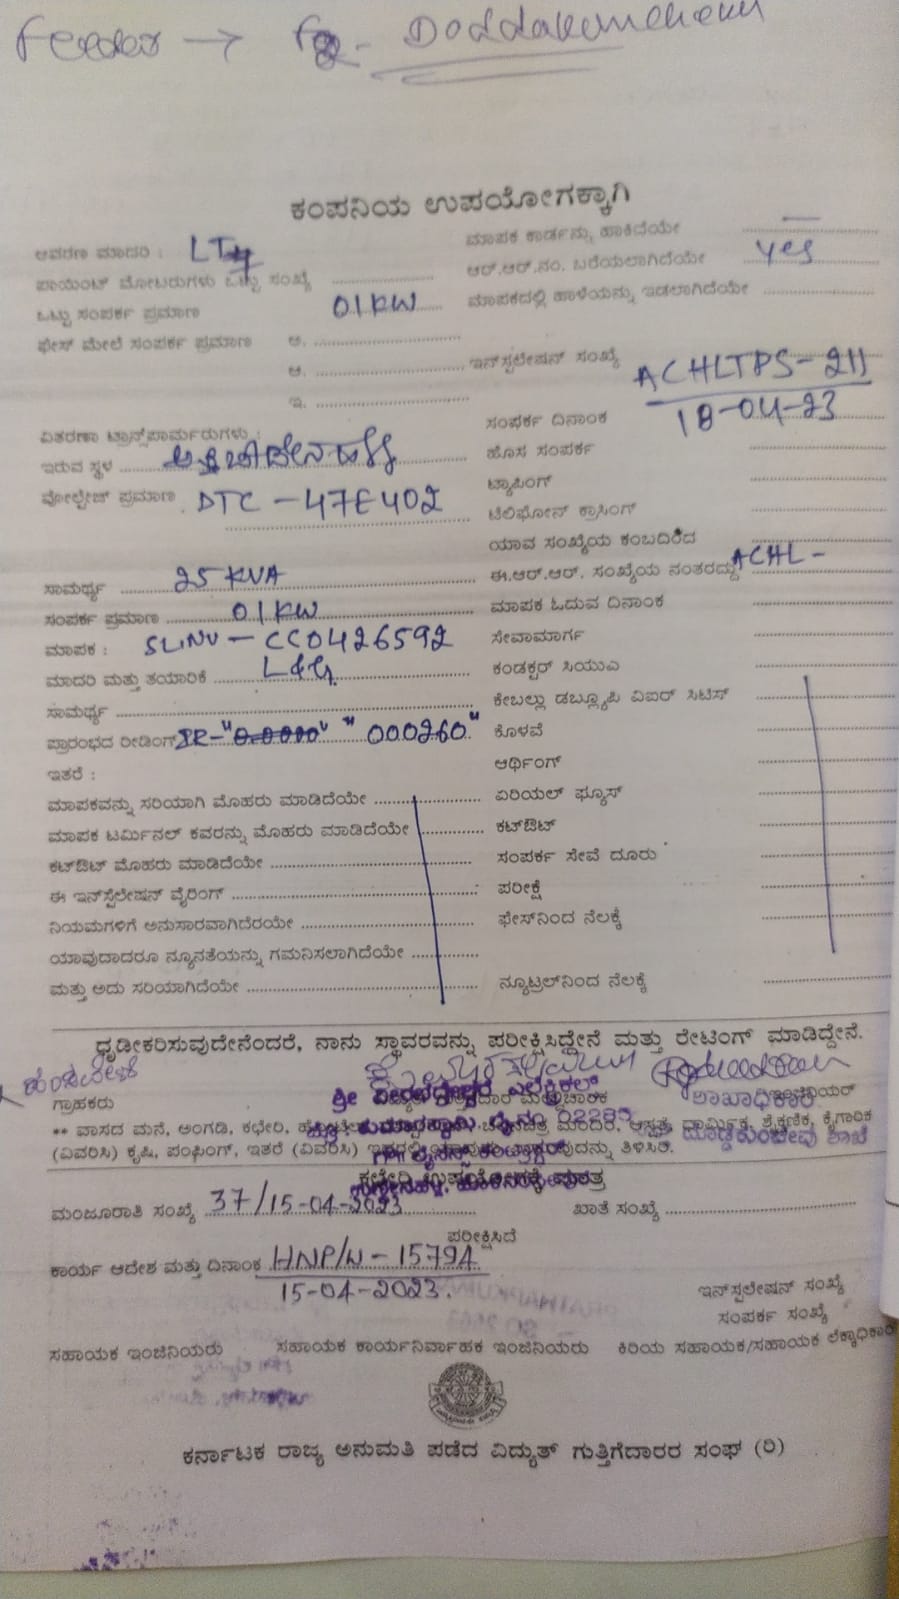 Feeder → F8- Doddakuncheva
ಕಂಪನಿಯ ಉಪಯೋಗಕ್ಕಾಗಿ
ಆವರಣ ಮಾದರಿ : LT
ಮಾಪಕ ಕಾರ್ಡನ್ನು ಹಾಕಿದೆಯೇ —
ಪಾಯಿಂಟ್ ಮೋಟರುಗಳು ಒಟ್ಟು ಸಂಖ್ಯೆ
ಆರ್.ಆರ್.ನಂ. ಬರೆಯಲಾಗಿದೆಯೇ yes
ಒಟ್ಟು ಸಂಪರ್ಕ ಪ್ರಮಾಣ 01KW
ಮಾಪಕದಲ್ಲಿ ಹಾಳೆಯನ್ನು ಇಡಲಾಗಿದೆಯೇ
ಫೇಸ್ ಮೇಲೆ ಸಂಪರ್ಕ ಪ್ರಮಾಣ ಅ.
ಆ.
ಇನ್‌ಸ್ಟಲೇಷನ್ ಸಂಖ್ಯೆ ACHLTPS-211
ಇ.
ಸಂಪರ್ಕ ದಿನಾಂಕ 18-04-23
ವಿತರಣಾ ಟ್ರಾನ್ಸ್‌ಫಾರ್ಮರುಗಳು :
ಹೊಸ ಸಂಪರ್ಕ
ಇರುವ ಸ್ಥಳ
ಟ್ಯಾಪಿಂಗ್
ವೋಲ್ಟೇಜ್ ಪ್ರಮಾಣ DTC-47E402
ಟೆಲಿಫೋನ್ ಕ್ರಾಸಿಂಗ್
ಯಾವ ಸಂಖ್ಯೆಯ ಕಂಬದಿಂದ
ಸಾಮರ್ಥ್ಯ 25 KVA
ಈ.ಆರ್.ಆರ್. ಸಂಖ್ಯೆಯ ನಂತರದ್ದು ACHL-
ಸಂಪರ್ಕ ಪ್ರಮಾಣ 01KW
ಮಾಪಕ ಓದುವ ದಿನಾಂಕ
ಮಾಪಕ : SLNU-CC0426592
ಸೇವಾಮಾರ್ಗ
ಮಾದರಿ ಮತ್ತು ತಯಾರಿಕೆ L&G
ಕಂಡಕ್ಟರ್ ಸಿಯುಎ
ಸಾಮರ್ಥ್ಯ
ಕೇಬಲ್ಲು ಡಬ್ಲ್ಯೂಪಿ ವಿಐಆರ್ ಸಿಟಿಸ್
ಪ್ರಾರಂಭದ ರೀಡಿಂಗ್ IR-"0.0000" "000260"
ಕೊಳವೆ
ಇತರೆ :
ಆರ್ಥಿಂಗ್
ಮಾಪಕವನ್ನು ಸರಿಯಾಗಿ ಮೊಹರು ಮಾಡಿದೆಯೇ
ಏರಿಯಲ್ ಫ್ಯೂಸ್
ಮಾಪಕ ಟರ್ಮಿನಲ್ ಕವರನ್ನು ಮೊಹರು ಮಾಡಿದೆಯೇ
ಕಟ್‌ಔಟ್
ಕಟ್‌ಔಟ್ ಮೊಹರು ಮಾಡಿದೆಯೇ
ಸಂಪರ್ಕ ಸೇವೆ ದೂರು
ಈ ಇನ್‌ಸ್ಟೆಲೇಷನ್ ವೈರಿಂಗ್
ಪರೀಕ್ಷೆ
ನಿಯಮಗಳಿಗೆ ಅನುಸಾರವಾಗಿದೆರಯೇ
ಫೇಸ್‌ನಿಂದ ನೆಲಕ್ಕೆ
ಯಾವುದಾದರೂ ನ್ಯೂನತೆಯನ್ನು ಗಮನಿಸಲಾಗಿದೆಯೇ
ಮತ್ತು ಅದು ಸರಿಯಾಗಿದೆಯೇ
ನ್ಯೂಟ್ರಲ್‌ನಿಂದ ನೆಲಕ್ಕೆ
ಧೃಡೀಕರಿಸುವುದೇನೆಂದರೆ, ನಾನು ಸ್ಥಾವರವನ್ನು ಪರೀಕ್ಷಿಸಿದ್ದೇನೆ ಮತ್ತು ರೇಟಿಂಗ್ ಮಾಡಿದ್ದೇನೆ.
ಶ್ರೀ ವೀರಭದ್ರೇಶ್ವರ ಎಲೆಕ್ಟ್ರಿಕಲ್
ಗ್ರಾಹಕರು ಶಾಖಾಧಿಕಾರಿ
** ವಾಸದ ಮನೆ, ಅಂಗಡಿ, ಕಛೇರಿ, ಚಲನಚಿತ್ರ ಮಂದಿರ, ಆಸ್ಪತ್ರೆ, ಧಾರ್ಮಿಕ, ಶೈಕ್ಷಣಿಕ, ಕೈಗಾರಿಕ
(ವಿವರಿಸಿ) ಕೃಷಿ, ಪಂಫಿಂಗ್, ಇತರೆ (ವಿವರಿಸಿ)
ಕಛೇರಿ ಉಪಯೋಗಕ್ಕೆ ಮಾತ್ರ
ಮಂಜೂರಾತಿ ಸಂಖ್ಯೆ 37/15-04-2023
ಖಾತೆ ಸಂಖ್ಯೆ
ಪರೀಕ್ಷಿಸಿದೆ
ಕಾರ್ಯ ಆದೇಶ ಮತ್ತು ದಿನಾಂಕ HNP/W-15794
15-04-2023.
ಇನ್‌ಸ್ಟಲೇಷನ್ ಸಂಖ್ಯೆ
ಸಂಪರ್ಕ ಸಂಖ್ಯೆ
ಸಹಾಯಕ ಇಂಜಿನಿಯರು ಸಹಾಯಕ ಕಾರ್ಯನಿರ್ವಾಹಕ ಇಂಜಿನಿಯರು ಕಿರಿಯ ಸಹಾಯಕ/ಸಹಾಯಕ ಲೆಕ್ಕಾಧಿಕಾರಿ
ಕರ್ನಾಟಕ ರಾಜ್ಯ ಅನುಮತಿ ಪಡೆದ ವಿದ್ಯುತ್ ಗುತ್ತಿಗೆದಾರರ ಸಂಘ (ರಿ)